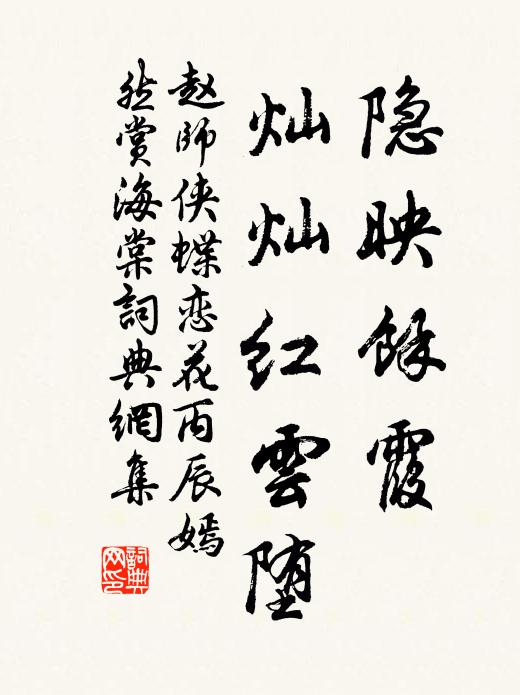 隐映馀霞
灿灿红雲堕
赵師侠蝶恋花丙辰嫣
然赏海棠詞典網集
詞典网印